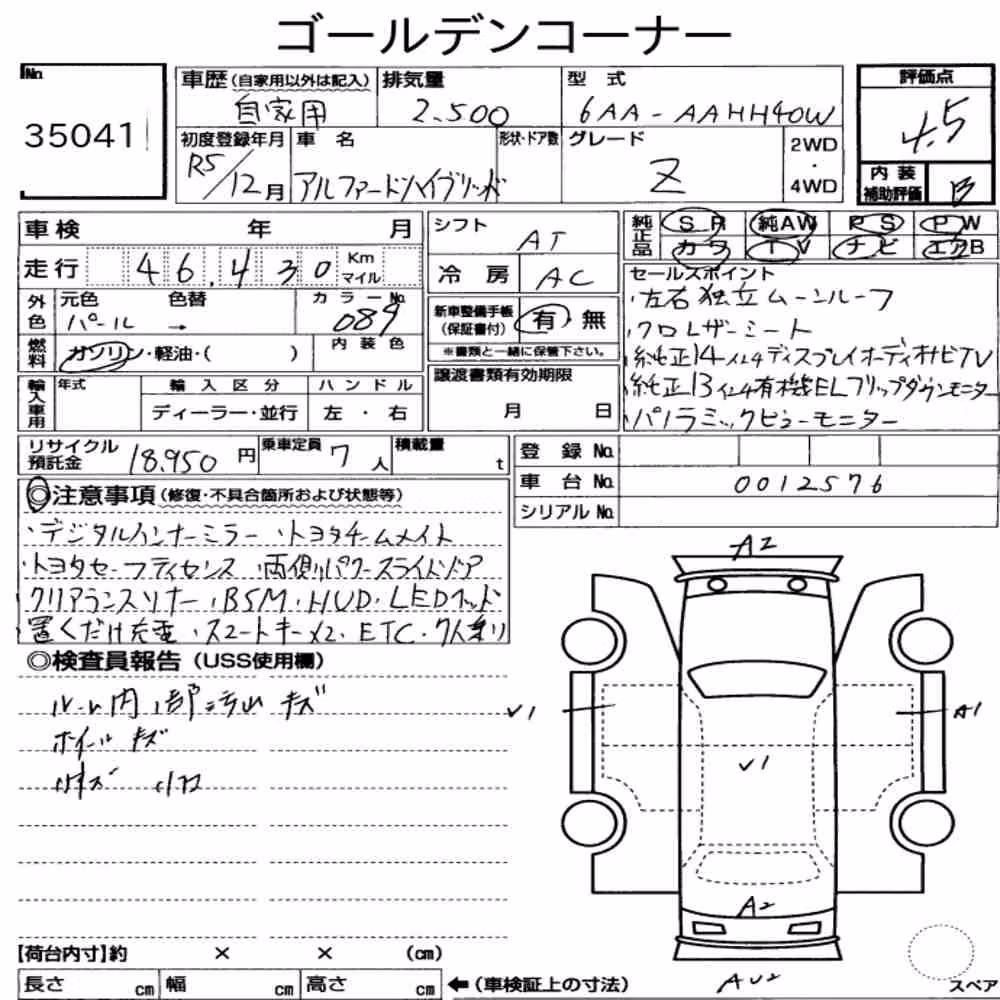 ゴールデンコーナー
No.
35041
車歴 (自家用以外は記入) 排気量 型式 評価点
自家用 2.500 6AA-AAHH40W 4.5
初度登録年月 車名 形状・ドア数 グレード 2WD・4WD
R5/12月 アルファードハイブリッド Z
内装補助評価 B
車検 年 月 シフト AT 純正品 SR 純AW PS PW
走行 46,430 Km マイル 冷房 AC カワ TV ナビ エアB
外色 元色 色替 カラーNo.
パール → 089
新車整備手帳 (保証書付) 有・無
※書類と一緒に保管下さい。
セールスポイント
・左右独立ムーンルーフ
・クロレザーシート
・純正14インチディスプレイオーディオナビTV
・純正13インチ有機ELフリップダウンモニター
・パノラミックビューモニター
燃料 ガソリン・軽油・( ) 内装色
輸入車用 年式 輸入区分 ハンドル
ディーラー・並行 左・右
譲渡書類有効期限
月 日
リサイクル預託金 18.950 円 乗車定員 7 人 積載量 t
登録No.
車台No. 0012576
シリアルNo.
◎注意事項 (修復・不具合箇所および状態等)
・デジタルインナーミラー ・トヨタチームメイト
・トヨタセーフティセンス ・両側パワースライドドア
・クリアランスソナー・BSM・HUD・LEDヘッド
・置くだけ充電・スマートキー×2・ETC・7人乗り
◎検査員報告 (USS使用欄)
ルーム内 キズ
ホイール キズ
A2
V1
A1
V1
A2
AU2
【荷台内寸】約 × × (cm)
長さ cm 幅 cm 高さ cm ←(車検証上の寸法)
スペア